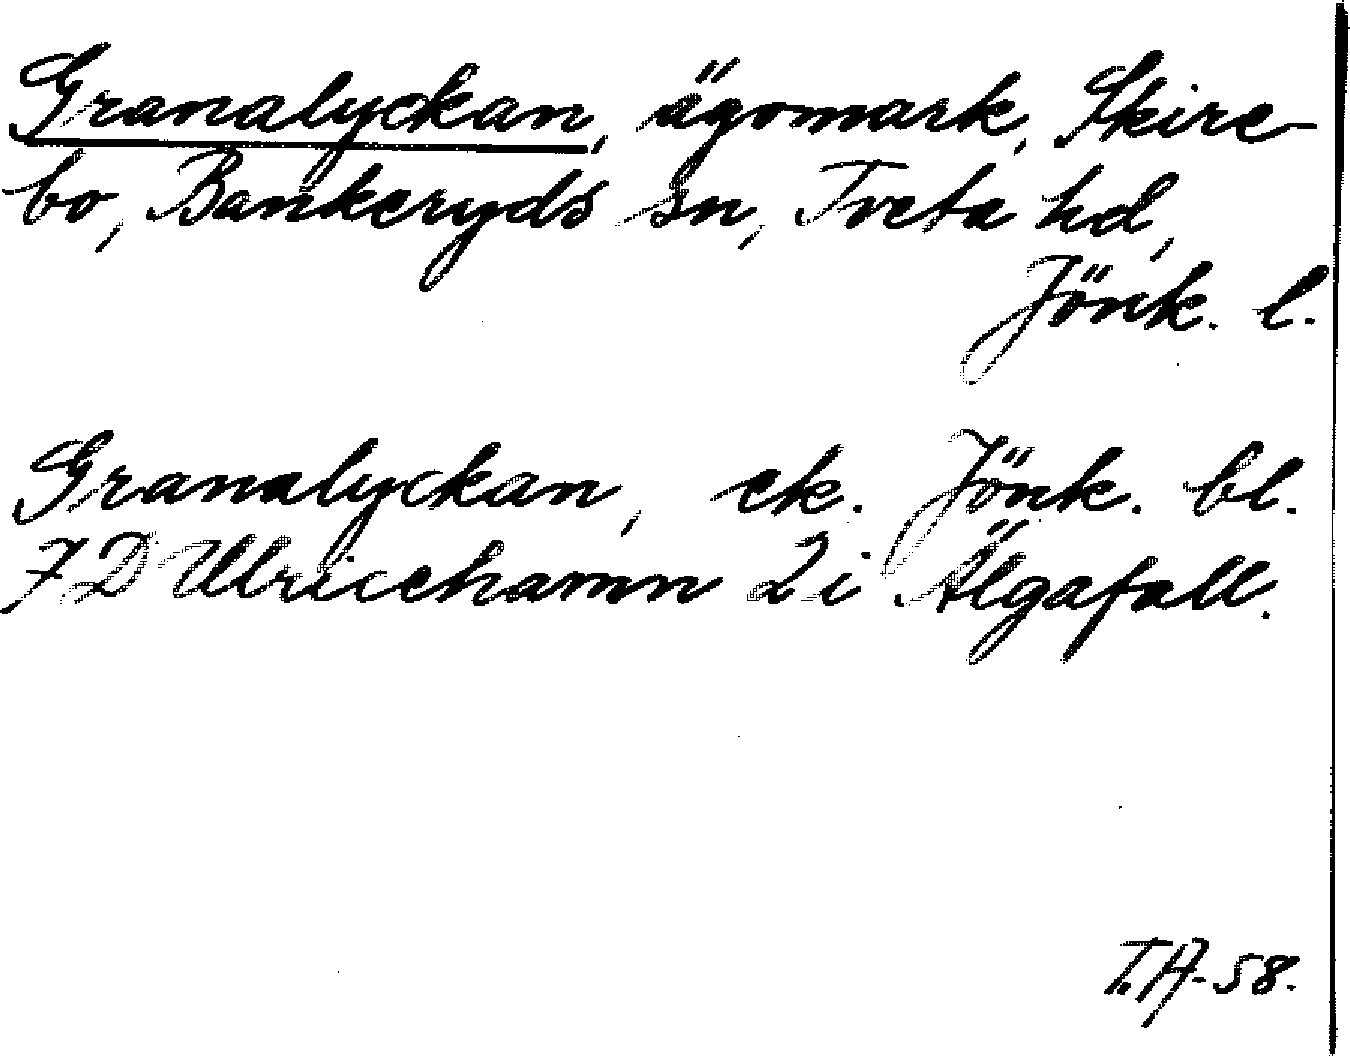 Granalyckan, ägomark, Skire-
bo, Bankeryds sn, Tveta hd,
Jönk. l.
Granalyckan, ek. Jönk. bl.
7D Ulricehamn 2i Älgafall.
T.A-58.